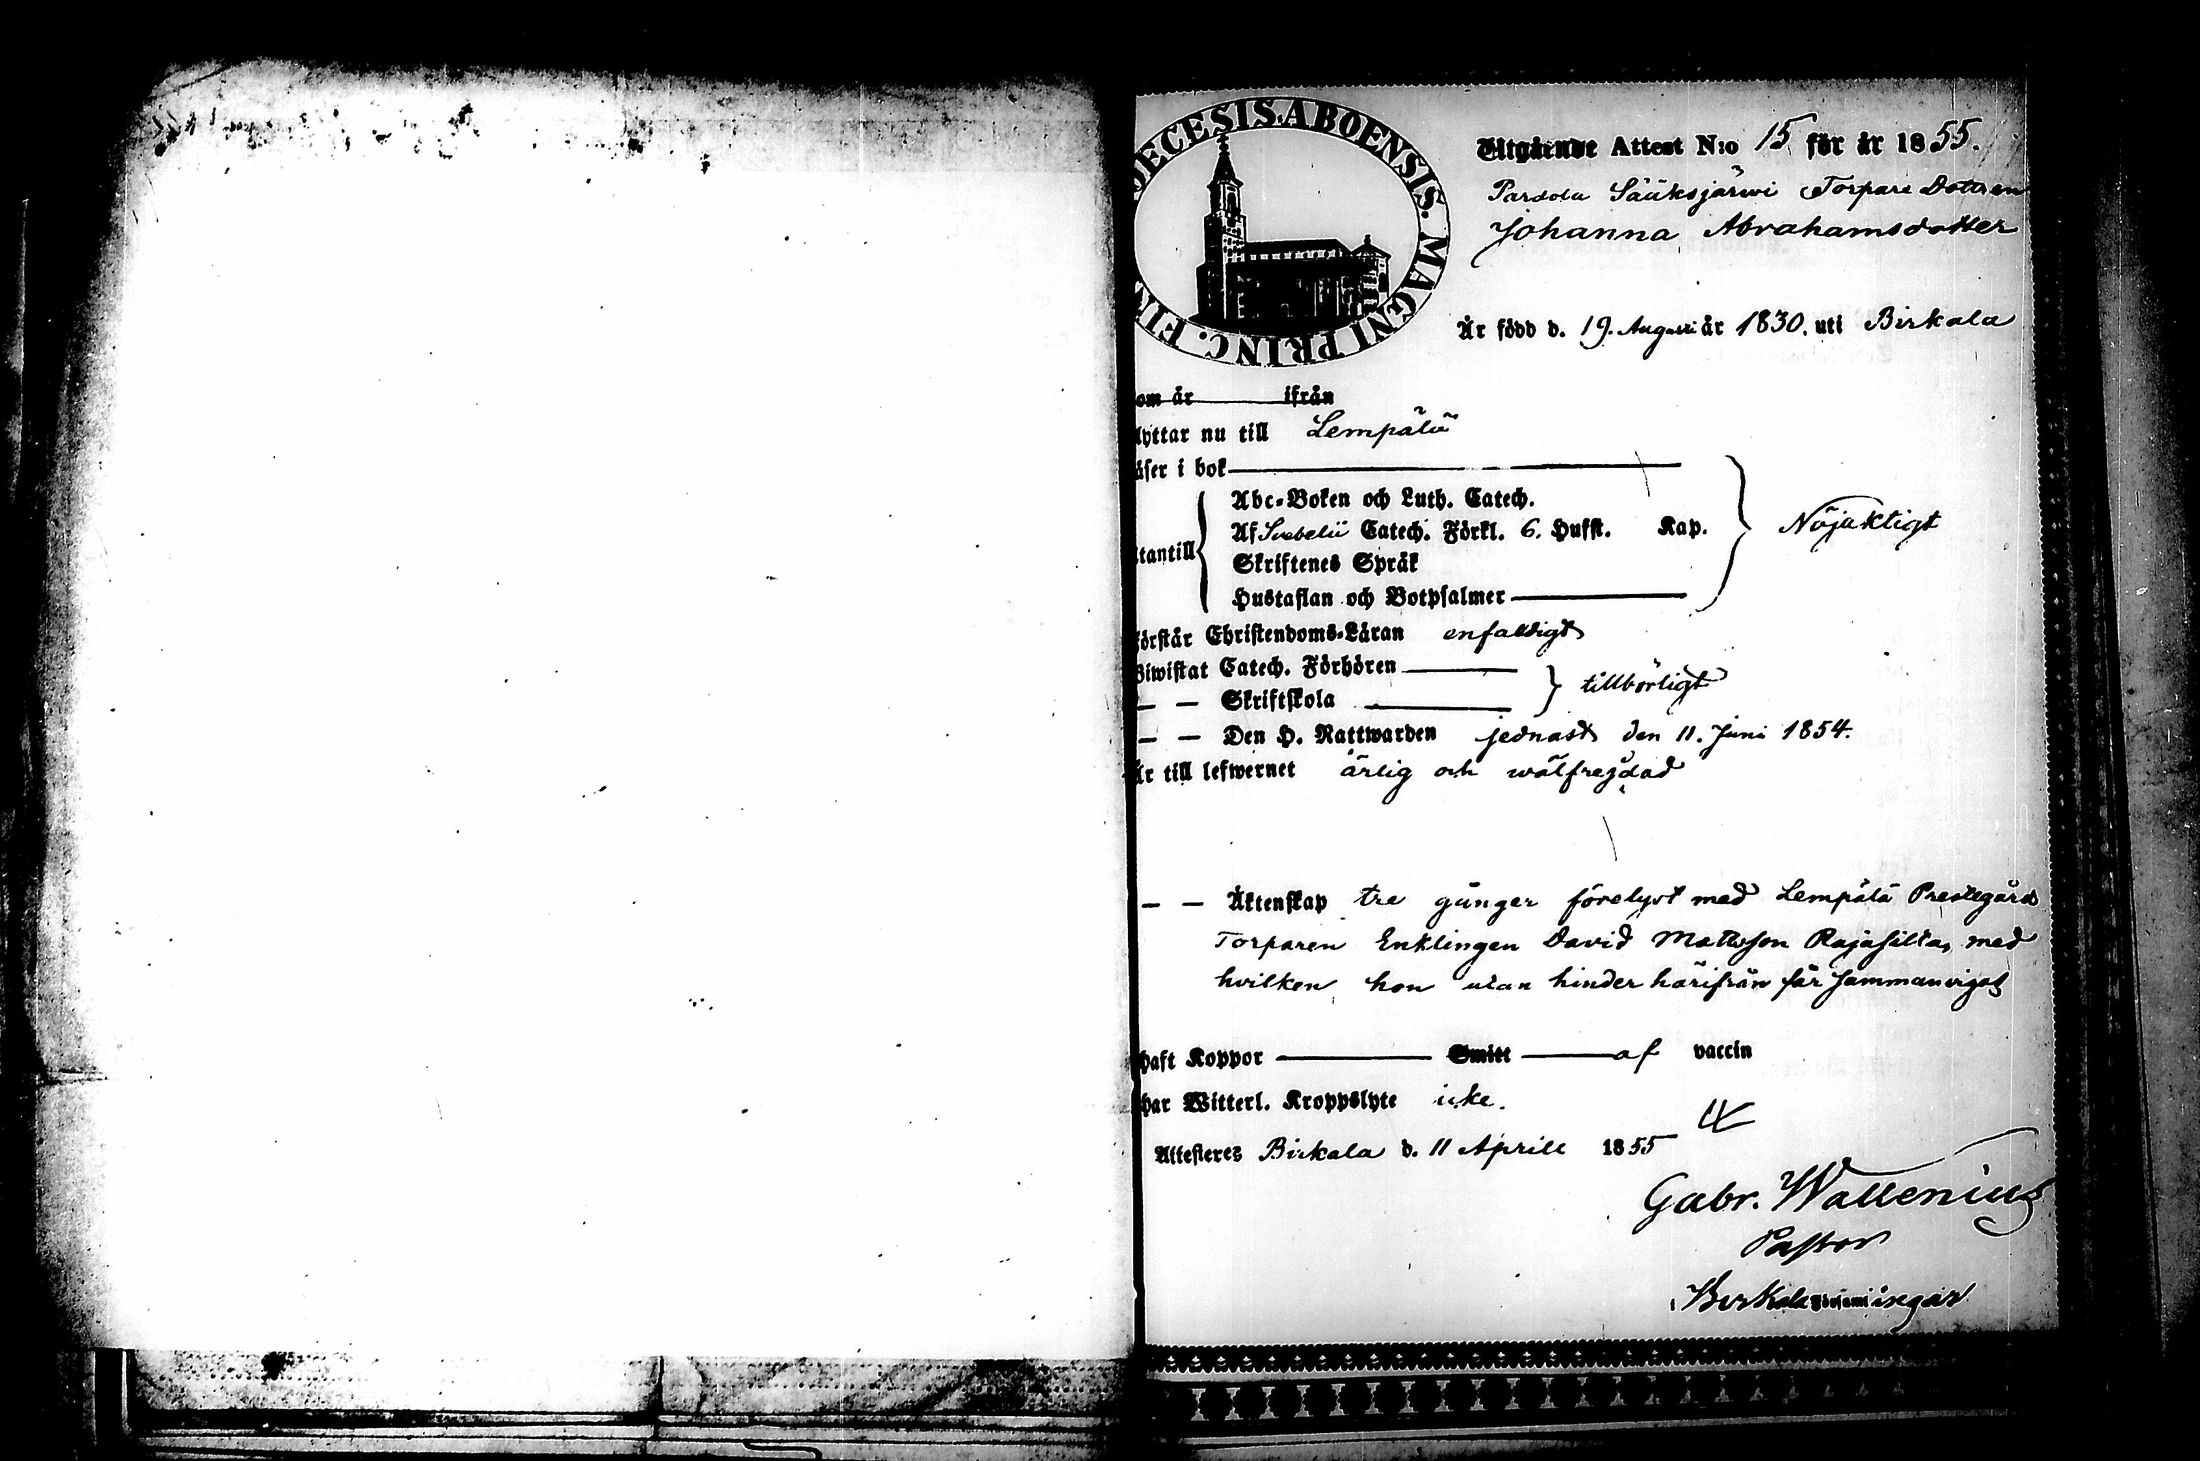 DECESIS.ABOENSIS. MAGNI PRINC. FIN
Utgående Attest N:o 15 för år 1855.
Pardola Sääksjärwi Torpare Dottren
Johanna Abrahamsdotter
Är född d. 19. Augusti år 1830. uti Birkala
om år ifrån
lyttar nu till Lempälä
äser i bok
Abc-Boken och Luth. Catech.
Af Svebelii Catech. Förkl. 6. Hufst. Kap. Nöjaktigt
tantill
Skriftenes Språk
Hustaflan och Botpsalmer
örstår Christendoms-Läran enfaldigt
Biwistat Catech. Förhören
— — Skriftskola tillbörligt
— — Den H. Nattwarden sednast den 11. Juni 1854.
Är till lefwernet ärlig och wälfregdad
— — Äktenskap tre gånger förelyst med Lempälä Prestegård
Torparen Enklingen David Mattsson Rajasilta, med
hvilken hon utan hinder härifrån får sammanvigas
haft Koppor Smitt af vaccin
har Witterl. Kroppslyte icke.
Attesteres Birkala d. 11 Aprill 1855
Gabr. Wallenius
Pastor
Birkala